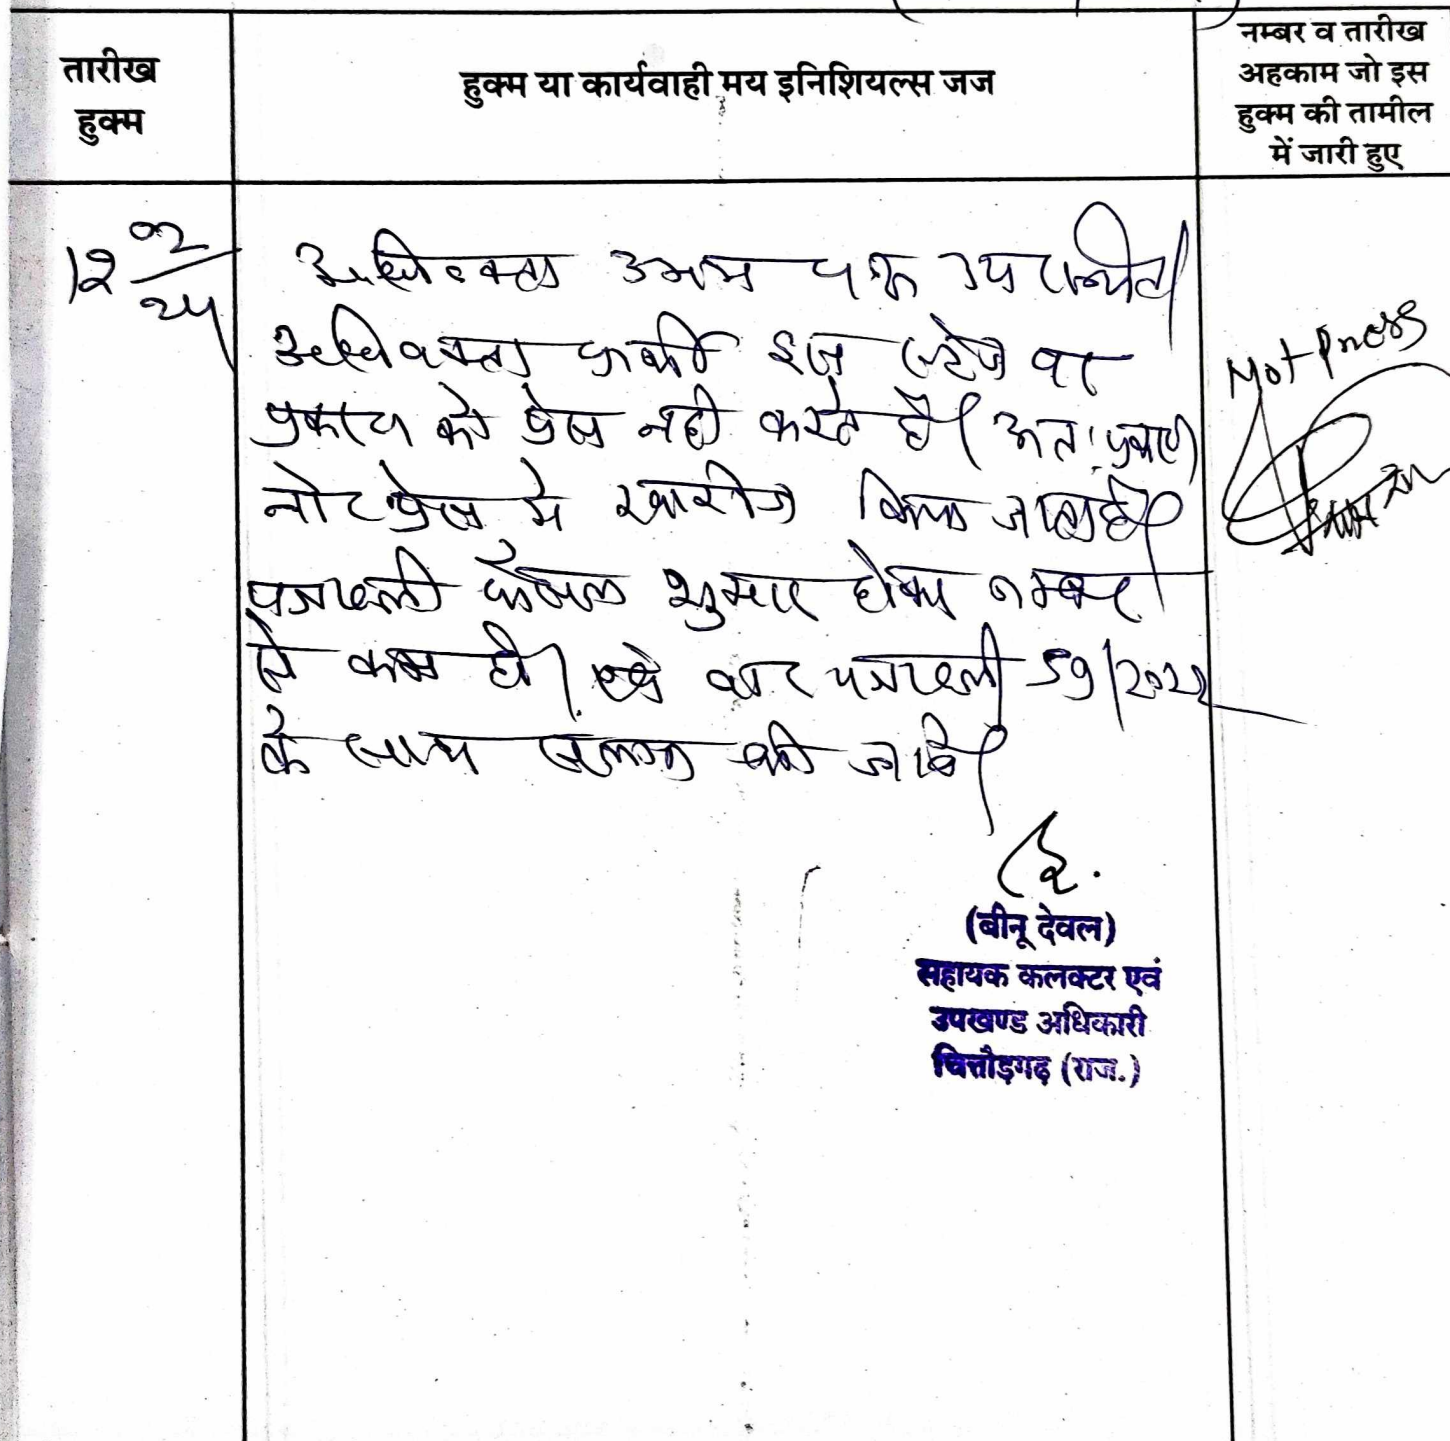 तारीख
हुक्म
हुक्म या कार्यवाही मय इनिशियल्स जज
नम्बर व तारीख
अहकाम जो इस
हुक्म की तामील
में जारी हुए
12
02
24
अधिवक्ता उभय पक्ष उपस्थित।
अधिवक्ता प्रार्थी इस स्टेज पर
प्रकरण को प्रेस नही करते है। अतः प्रकरण
नोट प्रेस मे खारीज किया जाता है।
पत्रावली फैसल शुमार होकर नम्बर
से कम हो। पत्रावली 59/2022
के साथ संलग्न की जावे।
Not Press
(बीनू देवल)
सहायक कलक्टर एवं
उपखण्ड अधिकारी
चित्तौड़गढ़ (राज.)